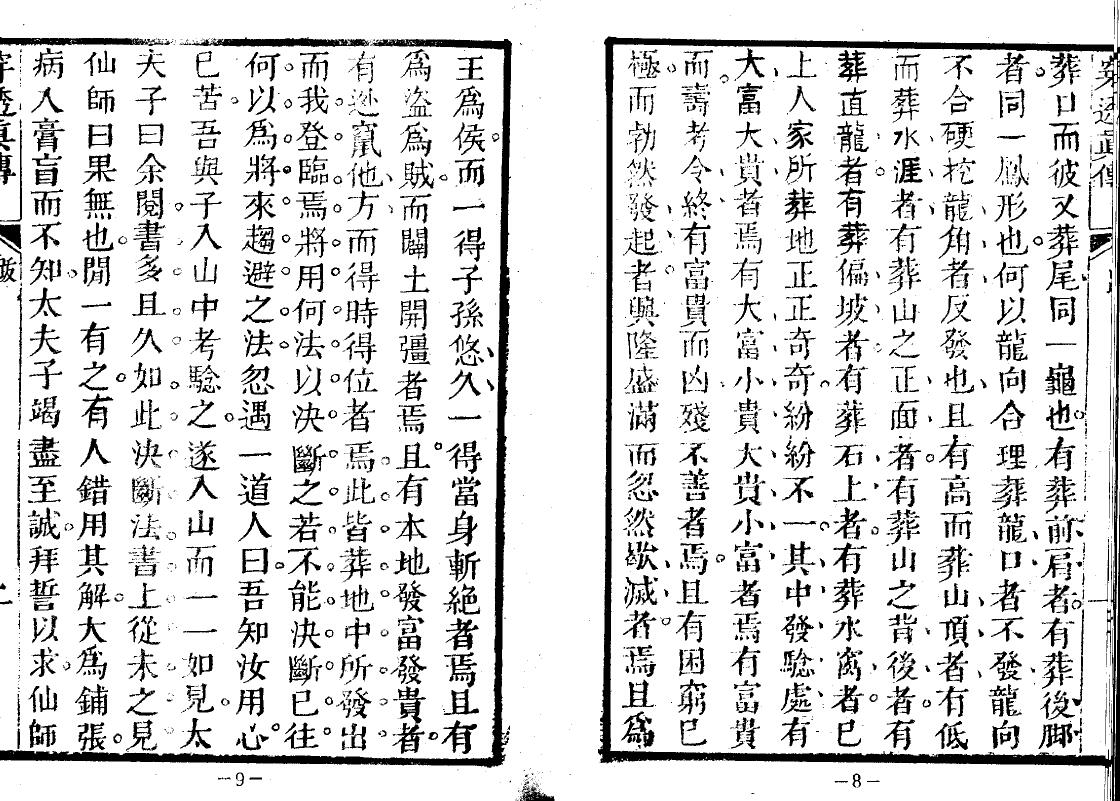 葬口而彼又葬尾同一龜也有葬前肩者有葬後脚
者同一鳳形也何以龍向合理葬龍口者不發龍向
不合硬挖龍角者反發也且有高而葬山頂者有低
而葬水涯者有葬山之正面者有葬山之背後者有
葬直龍者有葬偏坡者有葬石上者有葬水窩者已
上人家所葬地正正奇奇紛紛不一其中發驗處有
大富大貴者焉有大富小貴大貴小富者焉有富貴
而壽考令終有富貴而凶殘不善者焉且有困窮已
極而勃然發起者興隆盛滿而忽然歇滅者焉且爲
-8-
王爲侯而一得子孫悠久一得當身斬絕者焉且有
爲盜爲賊而闢土開疆者焉且有本地發富發貴者
有逃竄他方而得時得位者焉此皆葬地中所發出
而我登臨焉將用何法以決斷之若不能決斷已往
何以爲將來趨避之法忽遇一道人曰吾知汝用心
已苦吾與子入山中考驗之遂入山而一一如見太
夫子曰余閱書多且久如此決斷法書上從未之見
仙師曰果無也間一有之有人錯用其解大爲鋪張
病入膏肓而不知太夫子竭盡至誠拜誓以求仙師
透真傳
-9-